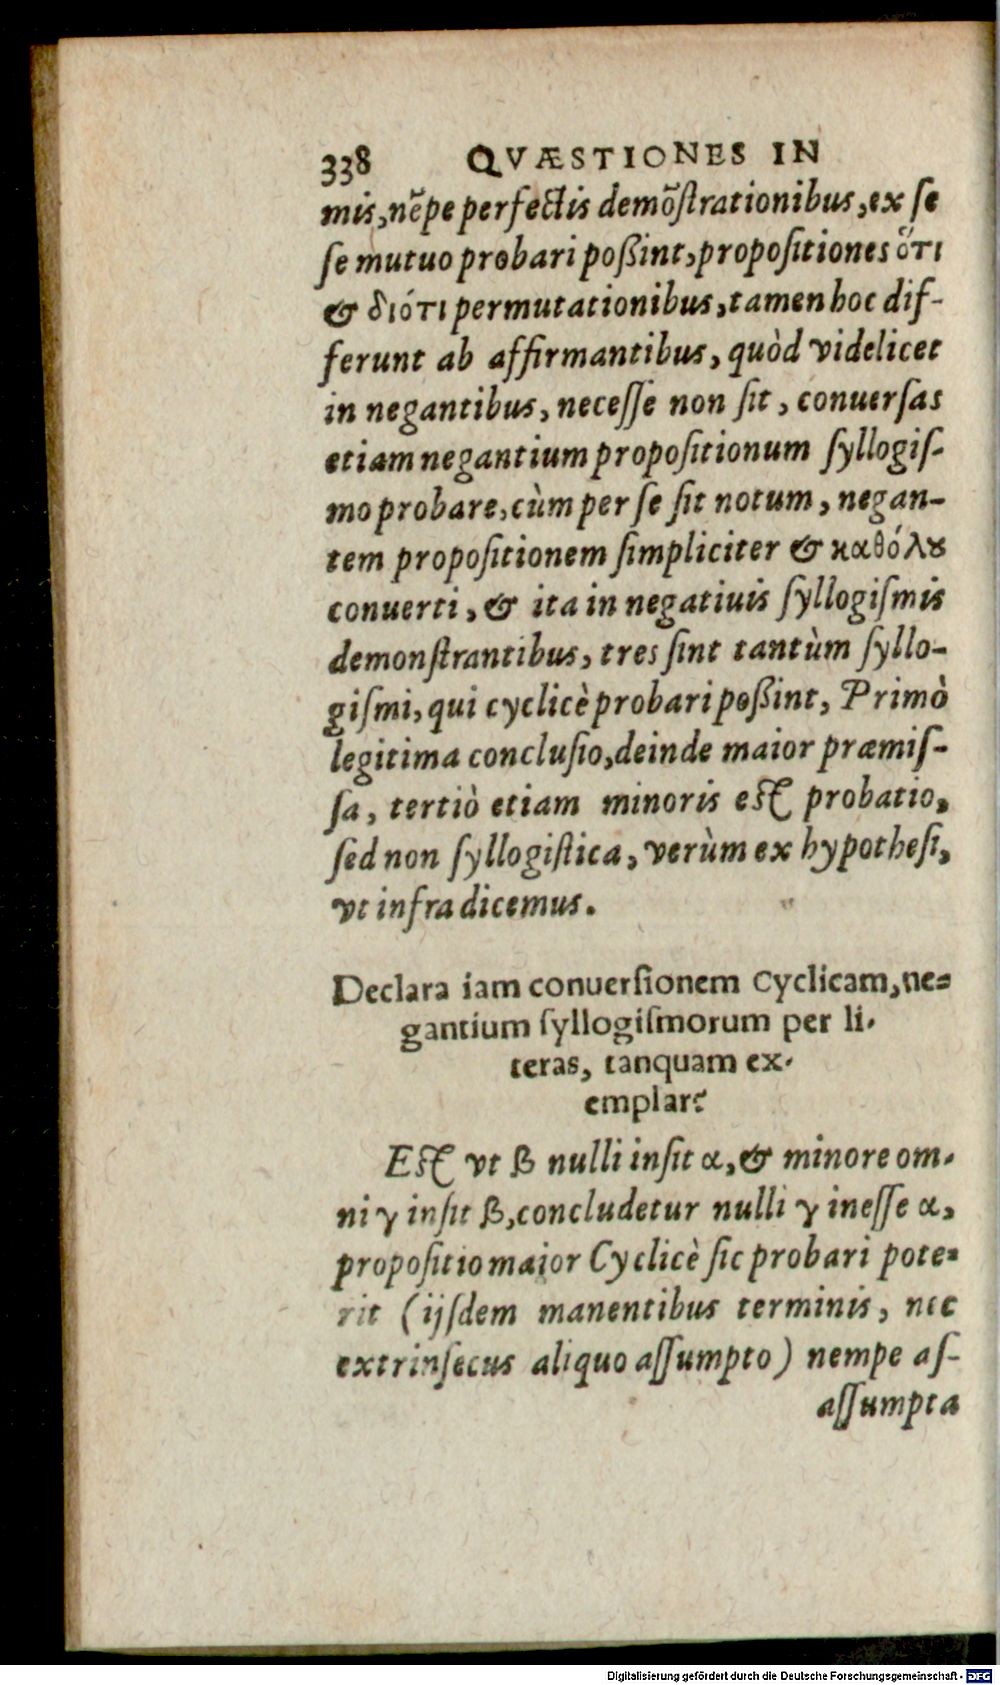 338 QVÆSTIONES IN
mis,nẽpe perfectis demõſtrationibus,ex ſe
ſe mutuo probari poßint,propoſitiones ὅτι
& διότι permutationibus,tamen hoc dif-
ferunt ab affirmantibus, quòd videlicet
in negantibus, neceſſe non ſit, conuerſas
etiam negantium propoſitionum ſyllogiſ-
mo probare,cùm per ſe ſit notum, negan-
tem propoſitionem ſimpliciter & καθόλȣ
conuerti, & ita in negatiuis ſyllogiſmis
demonſtrantibus, tres ſint tantùm ſyllo-
giſmi, qui cyclicè probari poßint, Primò
legitima concluſio,deinde maior præmiſ-
ſa, tertiò etiam minoris eſt probatio,
ſed non ſyllogiſtica, verùm ex hypotheſi,
vt infra dicemus.
Declara iam conuerſionem Cyclicam,ne-
gantium ſyllogiſmorum per li-
teras, tanquam ex-
emplar?
Eſt vt β nulli inſit α, & minore om-
ni γ inſit β,concludetur nulli γ ineſſe α,
propoſitio maior Cyclicè ſic probari pote-
rit (ijſdem manentibus terminis, nec
extrinſecus aliquo aſſumpto) nempe aſ-
aſſumpta
Digitalisierung gefördert durch die Deutsche Forschungsgemeinschaft - DFG